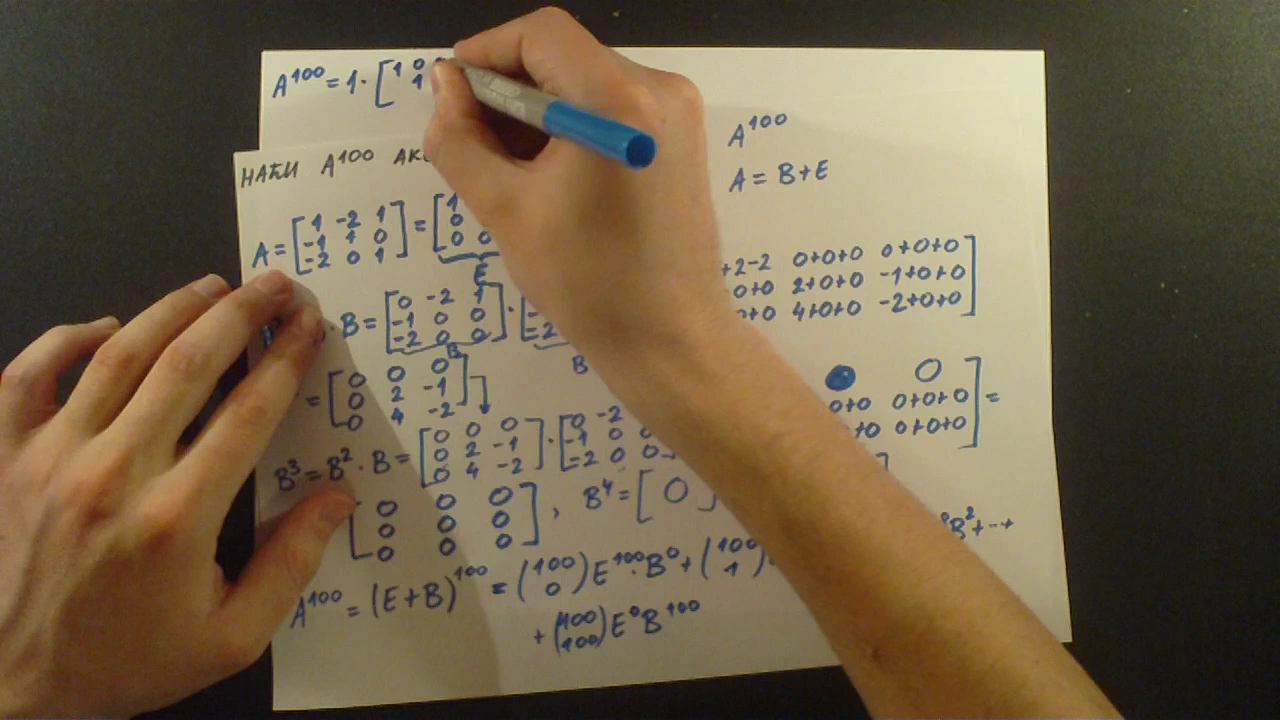 A¹⁰⁰ = 1 · [1 0
1
A¹⁰⁰
НАЋИ A¹⁰⁰ АКО
A = B+E
A = [1 -2 1] = [1
-1 1 0 0
-2 0 1 0 0
E
+2-2 0+0+0 0+0+0]
0+0 2+0+0 -1+0+0
0+0 4+0+0 -2+0+0
· B = [0 -2 1] · [
-1 0 0
-2 0 0 -2
B B
= [0 0 0]
0 2 -1
0 4 -2
0
0+0 0+0+0] =
+0 0+0+0
B³ = B² · B = [0 0 0] · [0 -2
0 2 -1 -1 0
0 4 -2 -2 0 0
[0 0 0] , B⁴ = [0]
0 0 0
0 0 0
B² + ...+
A¹⁰⁰ = (E+B)¹⁰⁰ = (100 0) E¹⁰⁰ · B⁰ + (100 1)
+ (100 100) E⁰ B¹⁰⁰